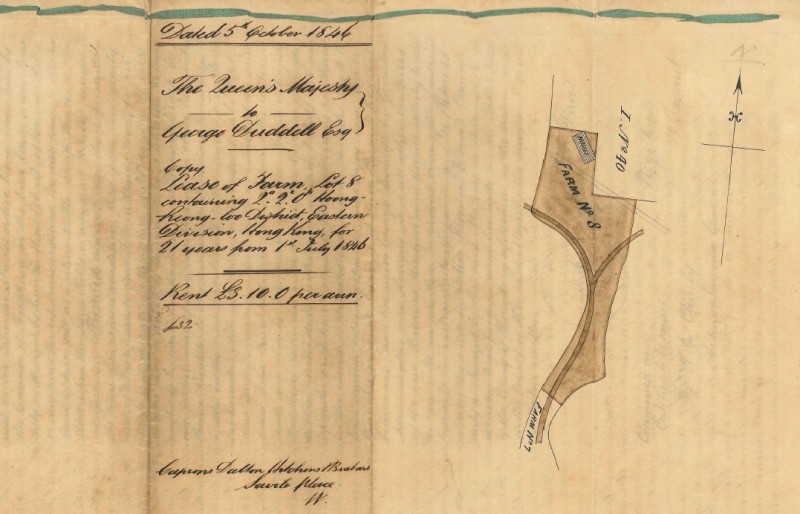 Dated 5th October 1846
The Queen's Majesty
to
George Duddell Esq
Copy
Lease of Farm, Lot 8
containing 2a. 2r. 0p Hoong-
heong-loo District, Eastern
Division, Hong Kong, for
21 years from 1st July 1846
Rent £3. 10. 0 per ann.
p32
Caprons Dalton Hitchins & Brabant
Savile Place
W.
I. No 90
HOUSE
FARM No 8
FARM No 7